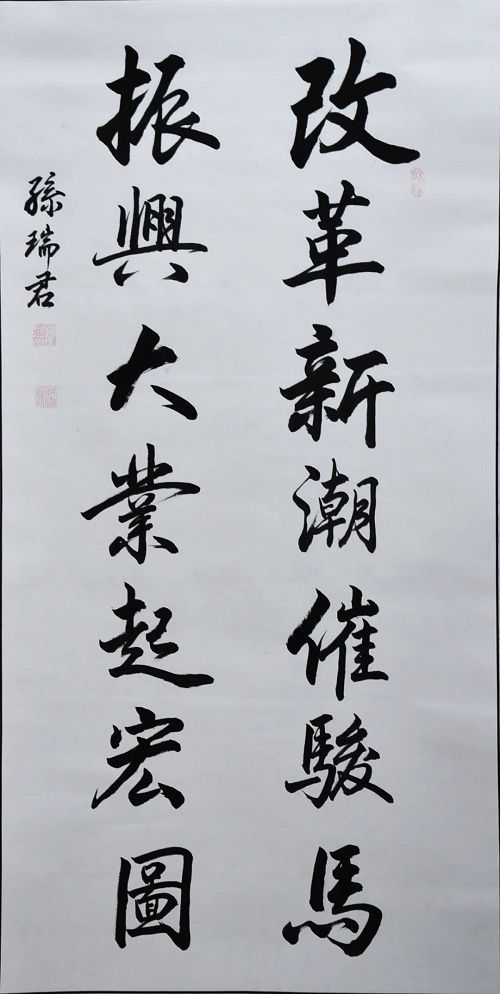 改革新潮催駿馬
振興大業起宏圖
孫瑞君